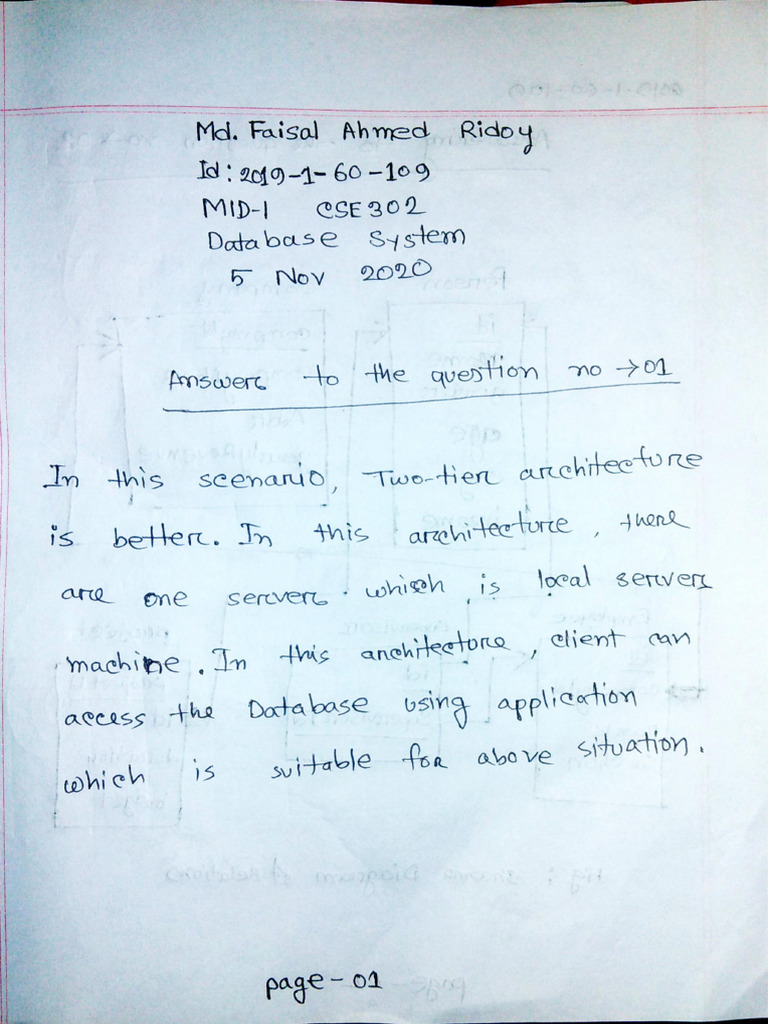 Md. Faisal Ahmed Ridoy
Id: 2019-1-60-109
MID-1 CSE302
Database System
5 Nov 2020
Answer to the question no → 01
In this scenario, Two-tier architecture
is better. In this architecture, there
are one server which is local server
machine. In this architecture, client can
access the Database using application
which is suitable for above situation.
page-01